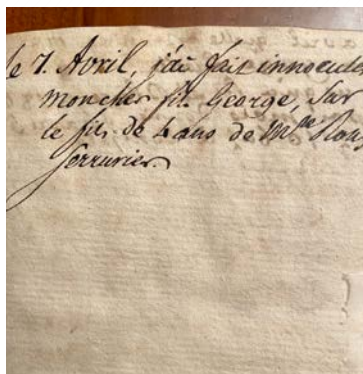 le 7. Avril, j'ai fait innoculer
mon cher fils George, Sur
le fils de 4 ans de Mde
Serrurier.